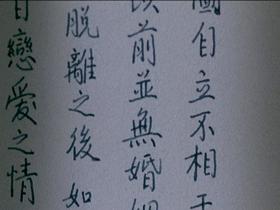 自立不相干
前並無婚姻
脫離之後如
自戀愛之情